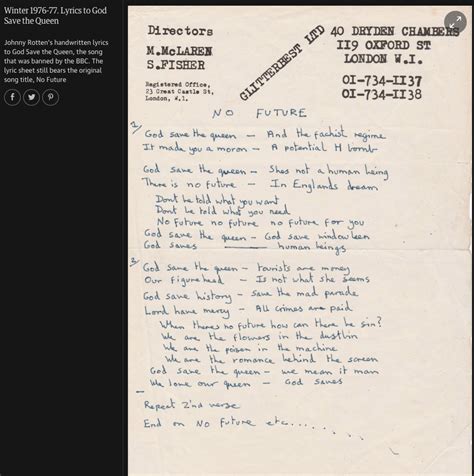 Winter 1976-77. Lyrics to God
Save the Queen
Johnny Rotten's handwritten lyrics
to God Save the Queen, the song
that was banned by the BBC. The
lyric sheet still bears the original
song title, No Future
Directors
M.McLAREN
S.FISHER
Registered Office,
23 Great Castle St,
London, W.1.
GLITTERBEST LTD
40 DRYDEN CHAMBERS
119 OXFORD ST
LONDON W.I.
01-734-1137
01-734-1138
NO FUTURE
1/
God save the queen – And the fachist regime
It made you a moron – A potential H bomb
God save the queen – Shes not a human being
There is no future – In Englands dream
Dont be told what you want
Dont be told what you need
No Future no future no future for you
God save the queen – God save windowleen
God saves — human beings
3
God save the queen – tourists are money
Our figurehead – Is not what she seems
God save history – Save the mad parade
Lord have mercy – All crimes are paid
When theres no future how can there be sin?
We are the flowers in the dustbin
We are the poison in the machine
We are the romance behind the screen
God save the queen – we mean it man
We love our queen – God saves
Repeat 2'nd verse
End on No Future etc.......